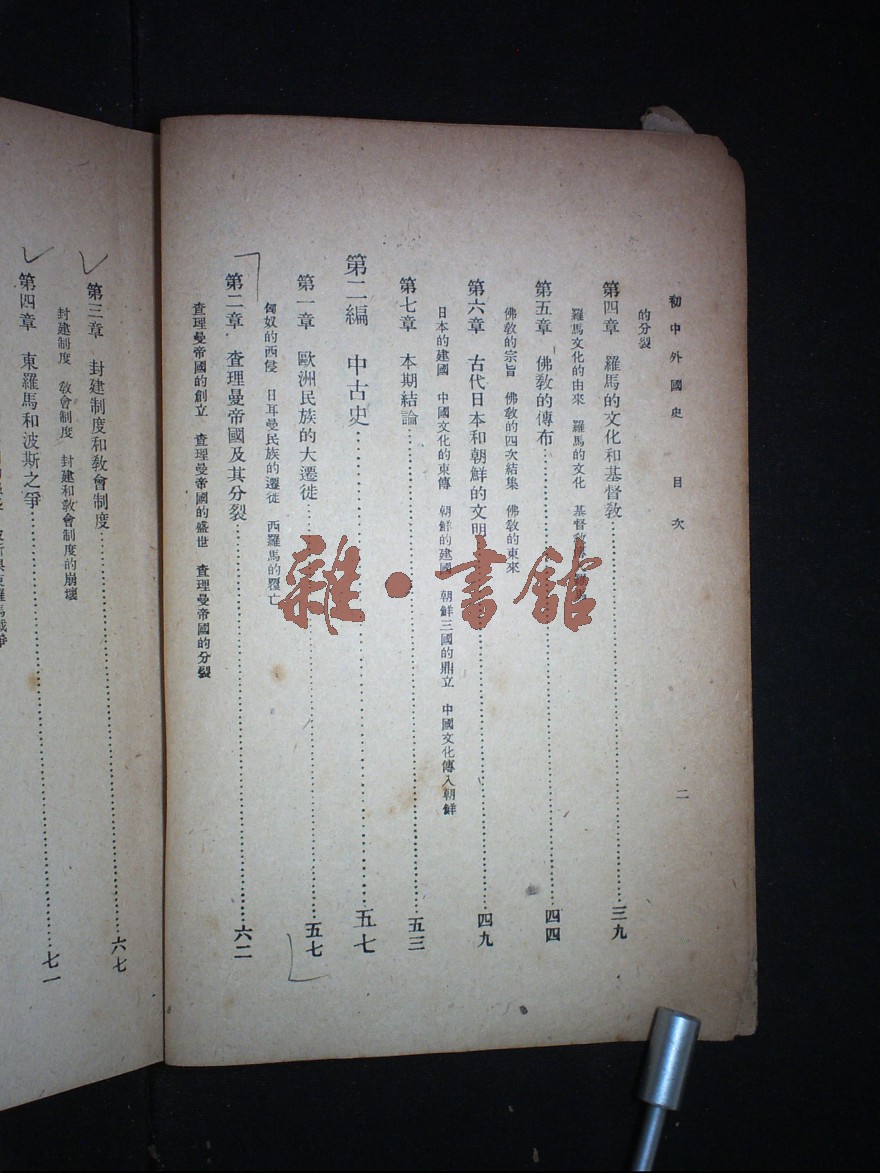 初中外國史 目次 二
的分裂
第四章 羅馬的文化和基督教……三九
羅馬文化的由來 羅馬的文化 基督教
第五章 佛教的傳布……四四
佛教的宗旨 佛教的四次結集 佛教的東來
第六章 古代日本和朝鮮的文明……四九
日本的建國 中國文化的東傳 朝鮮的建國 朝鮮三國的鼎立 中國文化傳入朝鮮
第七章 本期結論……五三
第二編 中古史……五七
第一章 歐洲民族的大遷徙……五七
匈奴的西侵 日耳曼民族的遷徙 西羅馬的覆亡
第二章 查理曼帝國及其分裂……六二
查理曼帝國的創立 查理曼帝國的盛世 查理曼帝國的分裂
第三章 封建制度和敎會制度……六七
封建制度 敎會制度 封建和敎會制度的崩壞
第四章 東羅馬和波斯之爭……七一
雜·書館